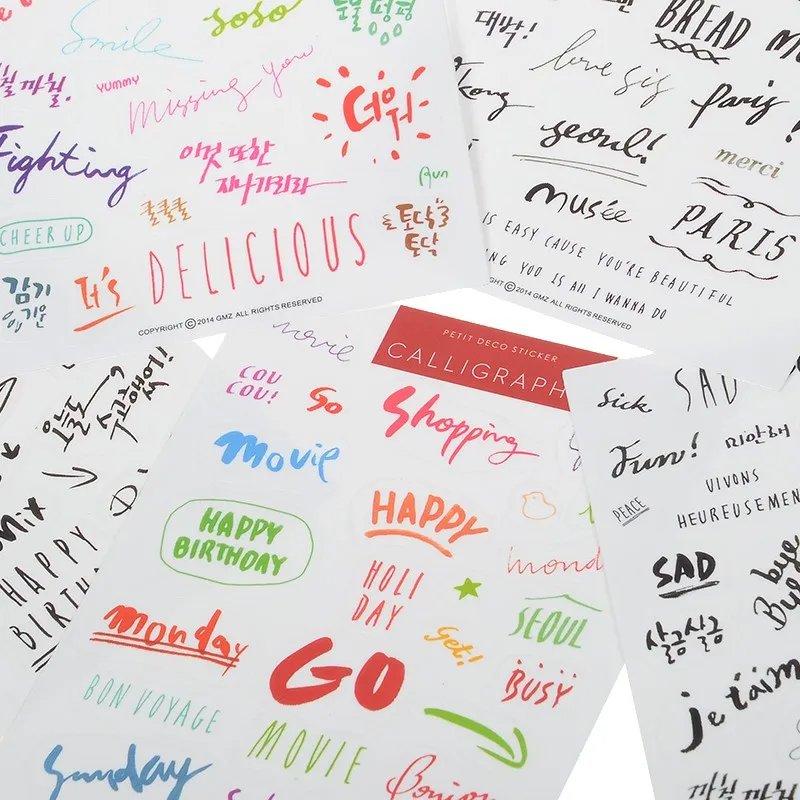 Smile
soso
YUMMY
Missing you
더워
Fighting
이것 또한
지나가리라
Run
CHEER UP
콜콜콜
토닥
토닥
감기
It's
DELICIOUS
COPYRIGHT ©2014 GMZ ALL RIGHTS RESERVED
대박!
BREAD
love sis
Paris!
seoul!
merci
musée
PARIS
IS EASY CAUSE YOU'RE BEAUTIFUL
YOU IS All I WANNA DO
©2014 GMZ ALL RIGHTS RESERVED
HAPPY
movie
PETIT DECO STICKER
CALLIGRAPH
COU
COU!
Go
Shopping
Movie
HAPPY
BIRTHDAY
HAPPY
HOLI
DAY
SEOUL
monday
Get!
GO
BUSY
BON VOYAGE
MOVIE
Sunday
Sick
SAD
Fun!
미안해
PEACE
VIVONS
HEUREUSEMEN
SAD
bye
Bye
살금살금
je t'aim
까칠까칠